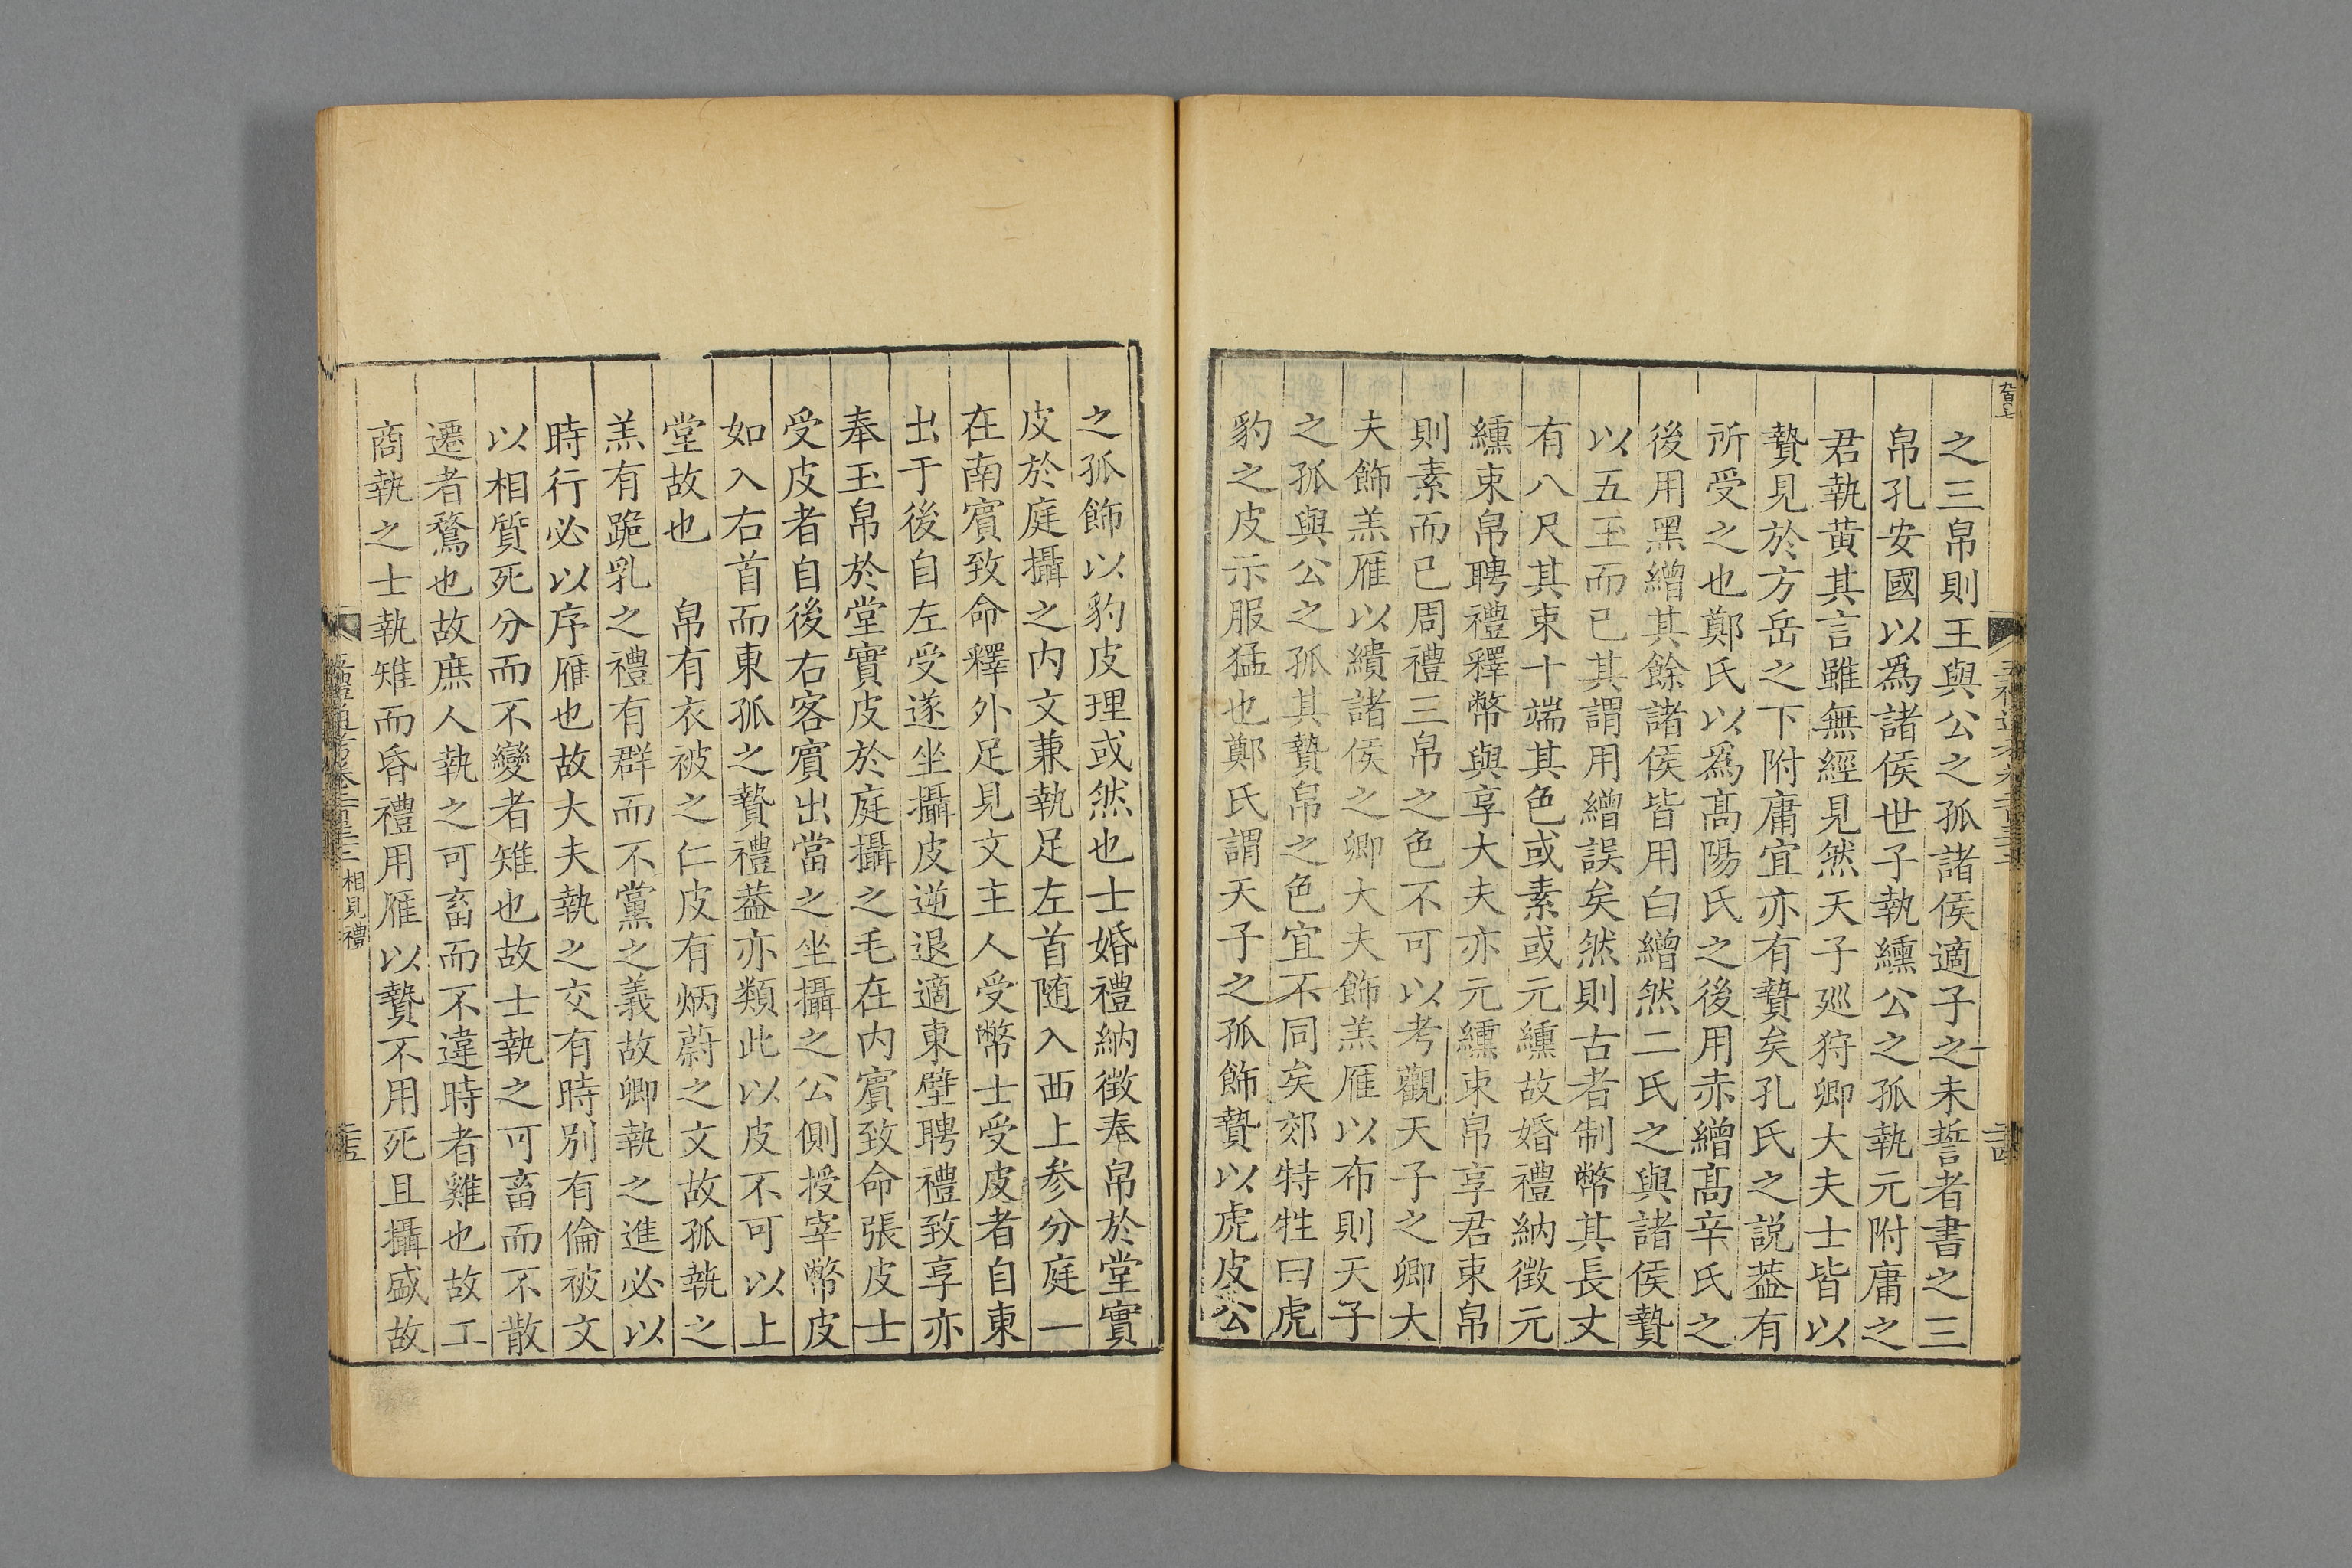 之三帛則王與公之孤諸侯適子之未誓者書之三
帛孔安國以爲諸侯世子執纁公之孤執元附庸之
君執黄其言雖無經見然天子廵狩卿大夫士皆以
贄見於方岳之下附庸宜亦有贄矣孔氏之説葢有
所受之也鄭氏以爲髙陽氏之後用赤繒髙辛氏之
後用黑繒其餘諸侯皆用白繒然二氏之與諸侯贄
以五玉而已其謂用繒誤矣然則古者制幣其長丈
有八尺其束十端其色或素或元纁故婚禮納徴元
纁束帛聘禮釋幣與享大夫亦元纁束帛享君束帛
則素而已周禮三帛之色不可以考觀天子之卿大
夫飾羔雁以繢諸侯之卿大夫飾羔雁以布則天子
之孤與公之孤其贄帛之色宜不同矣郊特牲曰虎
豹之皮示服猛也鄭氏謂天子之孤飾贄以虎皮公
之孤飾以豹皮理或然也士婚禮納徴奉帛於堂實
皮於庭攝之内文兼執足左首随入西上参分庭一
在南賔致命釋外足見文主人受幣士受皮者自東
出于後自左受遂坐攝皮逆退適東壁聘禮致享亦
奉玉帛於堂實皮於庭攝之毛在内賔致命張皮士
受皮者自後右客賔出當之坐攝之公側授宰幣皮
如入右首而東孤之贄禮葢亦類此以皮不可以上
堂故也　帛有衣被之仁皮有炳蔚之文故孤執之
羔有跪乳之禮有群而不黨之義故卿執之進必以
時行必以序雁也故大夫執之交有時別有倫被文
以相質死分而不變者雉也故士執之可畜而不散
遷者鶩也故庶人執之可畜而不違時者雞也故工
商執之士執雉而昏禮用雁以贄不用死且攝盛故
相見禮